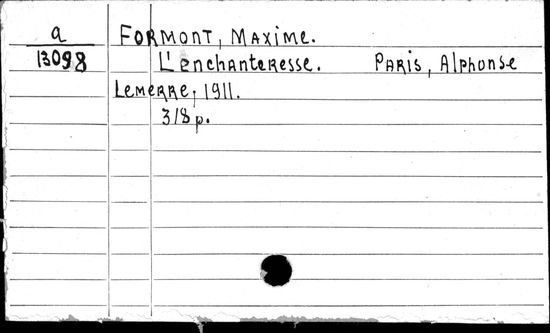 a FORMONT, MAXIME.
13098 L'enchanteresse. PARIS, Alphonse
LEMERRE, 1911.
318 p.